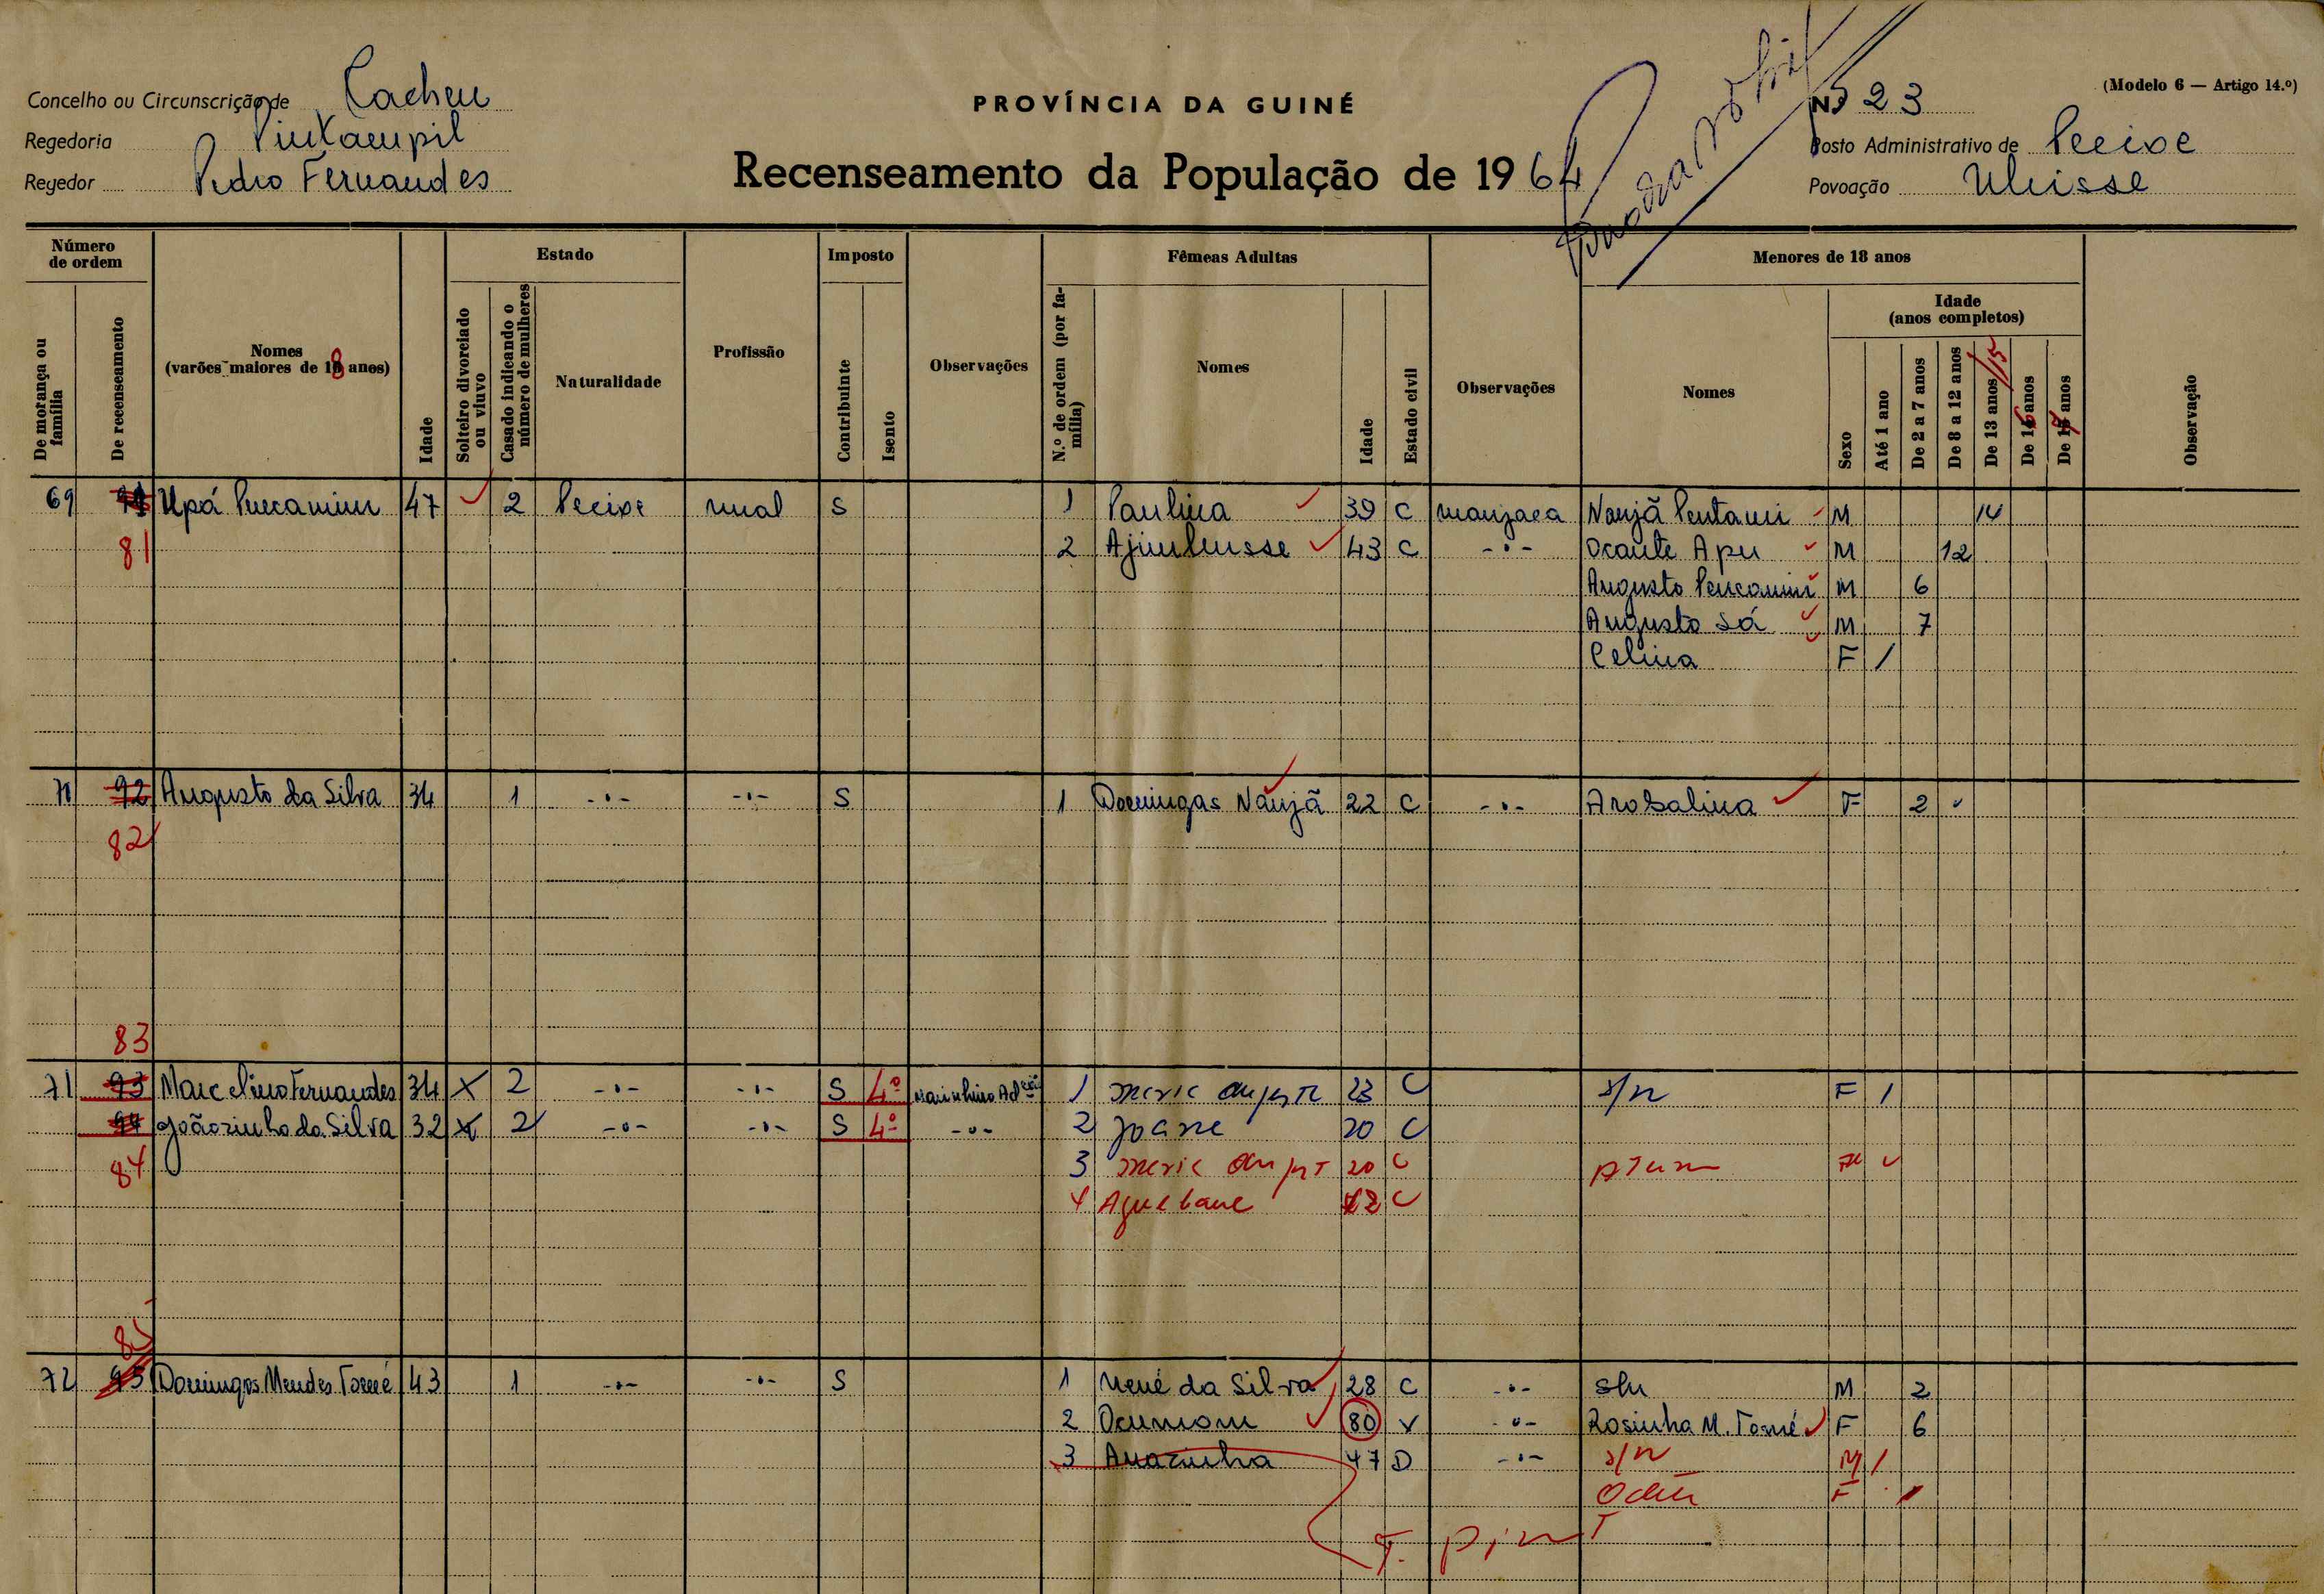 Concelho ou Circunscrição de Cacheu
Regedoria
Regedor Pedro Fernandes
PROVÍNCIA DA GUINÉ
Recenseamento da População de 1964
(Modelo 6 — Artigo 14.º)
Nº 23
Posto Administrativo de Pecixe
Povoação
Número de ordem
De morança ou família
De recenseamento
Nomes
(varões maiores de 18 anos)
Idade
Estado
Solteiro divorciado ou viuvo
Casado indicando o número de mulheres
Naturalidade
Profissão
Imposto
Contribuinte
Isento
Observações
Fêmeas Adultas
N.º de ordem (por família)
Nomes
Idade
Estado civil
Observações
Menores de 18 anos
Nomes
Sexo
Idade
(anos completos)
Até 1 ano
De 2 a 7 anos
De 8 a 12 anos
De 13 anos /15
De 16 anos
De anos
Observação
69 Upá 47 2 Pecixe rural S 1 Paulina 39 C manjaca Nanjã M 14
81 2 43 C -"- Ocante Apu M 12
Augusto M 6
Augusto Sá M 7
Celina F 1
70 92 Augusto da Silva 34 1 -"- -"- S 1 Domingas Nanjã 22 C -"- Arosalina F 2
82
83
71 93 Marcelino Fernandes 34 X 2 -"- -"- S 4º 1 23 C s/n F 1
94 Joãozinho da Silva 32 X 2 -"- -"- S 4º -"- 2 Joane 20 C
84 3 20 C
4 C
85
72 95 Domingos Mendes Tomé 43 1 -"- -"- S 1 Nené da Silva 28 C -"- s/n M 2
2 80 V -"- Rosinha M. Tomé F 6
3 47 D -"- s/n M 1
F